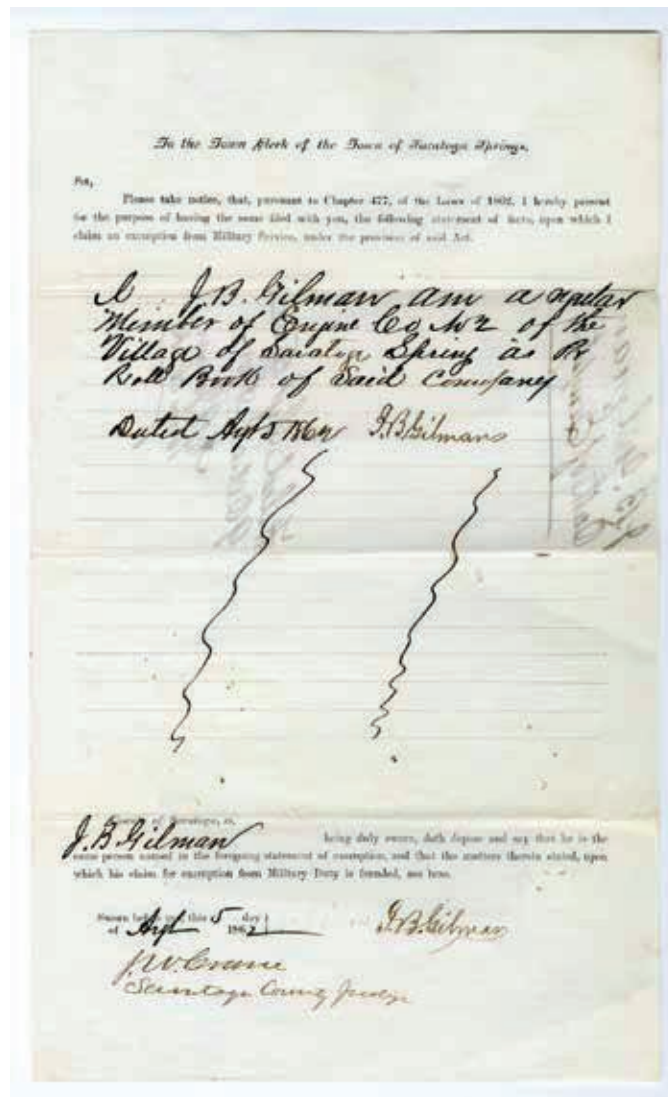 To the Town Clerk of the Town of Saratoga Springs,
Sir,
Please take notice, that, pursuant to Chapter 477, of the Laws of 1862, I hereby present
for the purpose of having the same filed with you, the following statement of facts, upon which I
claim an exemption from Military Service, under the provisions of said Act.
I J.B. Gilman am a regular
Member of Engine Co No 2 of the
Village of Saratoga Spring as Pr
Roll Book of Said Company
Dated 5 1862 J.B. Gilman
County of Saratoga, ss.
J.B Gilman being duly sworn, doth depose and say that he is the
same person named in the foregoing statement of exemption, and that the matters therein stated, upon
which his claim for exemption from Military Duty is founded, are true.
Sworn before me, this 5 day
of 1862 J.B. Gilman
J.W. Crane
Saratoga County Judge